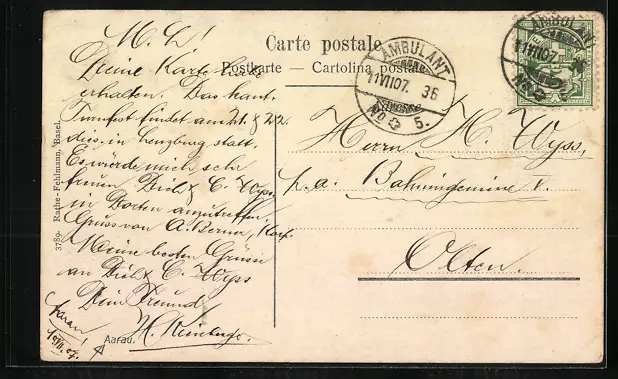 Carte postale.
Postkarte — Cartolina postale
AMBULANT
11 VII 07. 36
No 5.
M. L!
Deine Karte habe
erhalten. Das kant.
Turnfest findet am 21. & 22.
dies. in Lenzburg statt.
Es würde mich sehr
freuen Dich & E. Wyss.
in Dorten anzutreffen.
Gruss von A. Berner,
Meine besten Grüsse
an Dich & E. Wyss
Dein Freund
H.
Aarau
Aarau.
Herrn H. Wyss,
p. a. Bahningenieur V.
Olten.
3789. Rathe-Fehlmann, Basel.